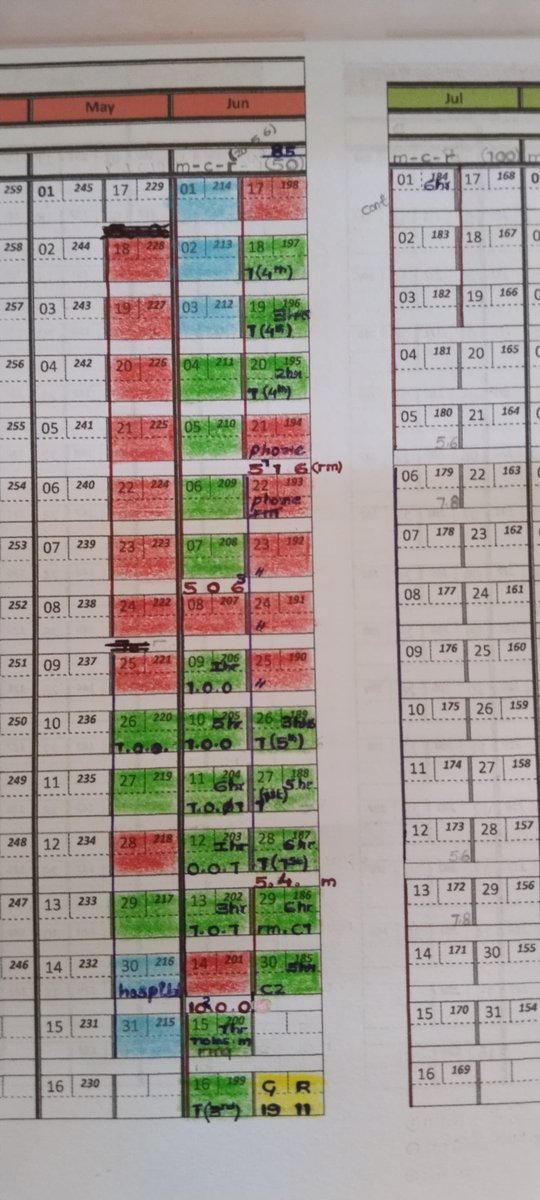 May Jun Jul
85
m-c-r (50) m-c-r (100)
259 01 245 17 229 01 214 17 198 01 184 6hr 17 168
cont
258 02 244 18 228 02 213 18 197 02 183 18 167
T(4m)
257 03 243 19 227 03 212 19 196 03 182 19 166
256 04 242 20 226 04 211 20 195 2hr 04 181 20 165
T(4m)
255 05 241 21 225 05 210 21 194 05 180 21 164
phone 5.6
5 1 6 (rm)
254 06 240 22 224 06 209 22 193 06 179 22 163
phone 7.8
253 07 239 23 223 07 208 23 192 07 178 23 162
"
5 0 6
252 08 238 24 222 08 207 24 191 08 177 24 161
"
251 09 237 25 221 09 206 1hr 25 190 09 176 25 160
T.O.O "
250 10 236 26 220 10 205 5hr 26 189 10 175 26 159
T.O.O. T.O.O
249 11 235 27 219 11 204 6hr 27 188 5hr 11 174 27 158
248 12 234 28 218 12 203 1hr 28 187 6hr 12 173 28 157
O.O.T 5.6
5.4. m
247 13 233 29 217 13 202 3hr 29 186 6hr 13 172 29 156
T.O.T rm. C1 7.8
246 14 232 30 216 14 201 30 185 14 171 30 155
C2
15 231 31 215 15 200 7hr 15 170 31 154
16 230 16 199 G R 16 169
19 11